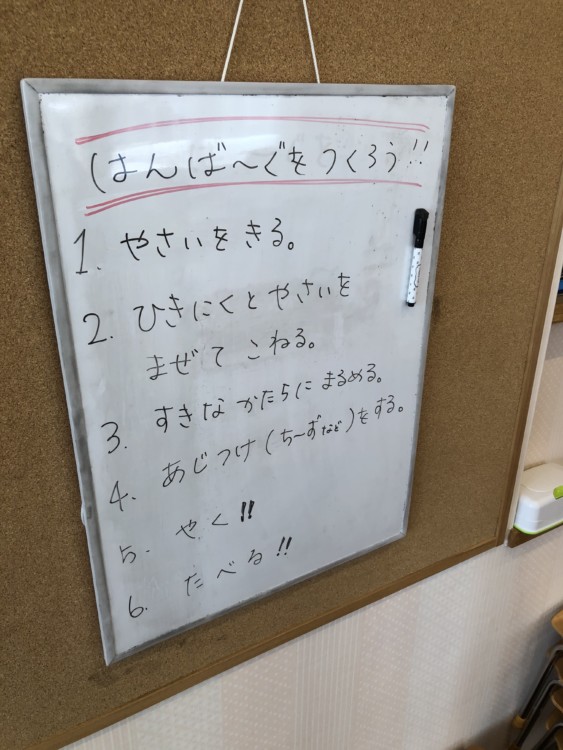 はんば〜ぐを つくろう!!
1. やさいを きる。
2. ひきにくと やさいを
まぜて こねる。
3. すきな かたちに まるめる。
4. あじつけ(ち〜ずなど)を する。
5. やく!!
6. たべる!!